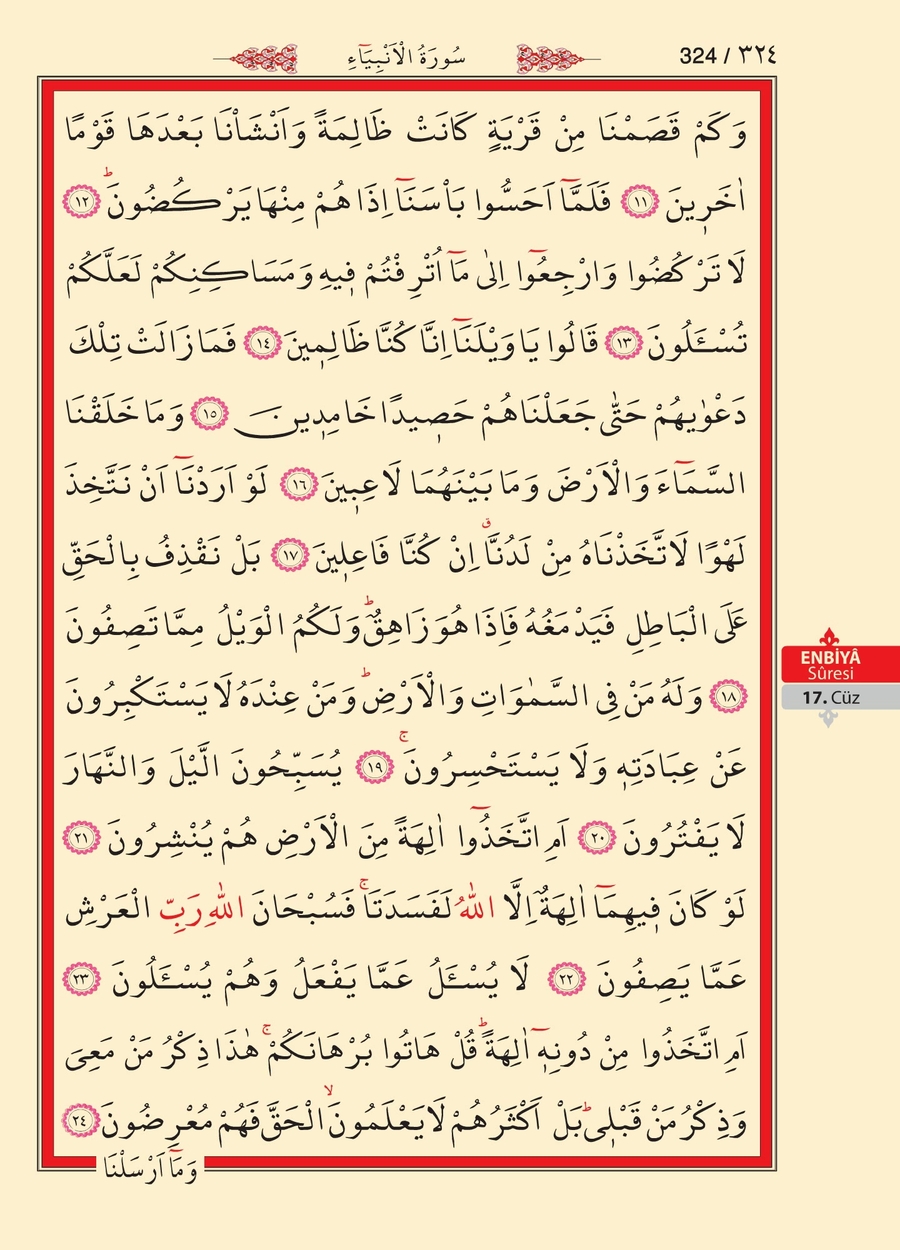 ٣٢٤ / 324
سُورَةُ الْاَنْبِيَٓاءِ
وَكَمْ قَصَمْنَا مِنْ قَرْيَةٍ كَانَتْ ظَالِمَةً وَاَنْشَأْنَا بَعْدَهَا قَوْمًا
اٰخَر۪ينَ ﴿١١﴾ فَلَمَّٓا اَحَسُّوا بَأْسَنَٓا اِذَا هُمْ مِنْهَا يَرْكُضُونَۜ ﴿١٢﴾
لَا تَرْكُضُوا وَارْجِعُٓوا اِلٰى مَٓا اُتْرِفْتُمْ ف۪يهِ وَمَسَاكِنِكُمْ لَعَلَّكُمْ
تُسْـَٔلُونَ ﴿١٣﴾ قَالُوا يَا وَيْلَنَٓا اِنَّا كُنَّا ظَالِم۪ينَ ﴿١٤﴾ فَمَا زَالَتْ تِلْكَ
دَعْوٰيهُمْ حَتّٰى جَعَلْنَاهُمْ حَص۪يدًا خَامِد۪ينَ ﴿١٥﴾ وَمَا خَلَقْنَا
السَّمَٓاءَ وَالْاَرْضَ وَمَا بَيْنَهُمَا لَاعِب۪ينَ ﴿١٦﴾ لَوْ اَرَدْنَٓا اَنْ نَتَّخِذَ
لَهْوًا لَاتَّخَذْنَاهُ مِنْ لَدُنَّاۗ اِنْ كُنَّا فَاعِل۪ينَ ﴿١٧﴾ بَلْ نَقْذِفُ بِالْحَقِّ
عَلَى الْبَاطِلِ فَيَدْمَغُهُ فَاِذَا هُوَ زَاهِقٌۜ وَلَكُمُ الْوَيْلُ مِمَّا تَصِفُونَ
﴿١٨﴾ وَلَهُ مَنْ فِي السَّمٰوَاتِ وَالْاَرْضِۜ وَمَنْ عِنْدَهُ لَا يَسْتَكْبِرُونَ
عَنْ عِبَادَتِه۪ وَلَا يَسْتَحْسِرُونَۚ ﴿١٩﴾ يُسَبِّحُونَ الَّيْلَ وَالنَّهَارَ
لَا يَفْتُرُونَ ﴿٢٠﴾ اَمِ اتَّخَذُٓوا اٰلِهَةً مِنَ الْاَرْضِ هُمْ يُنْشِرُونَ ﴿٢١﴾
لَوْ كَانَ ف۪يهِمَٓا اٰلِهَةٌ اِلَّا اللّٰهُ لَفَسَدَتَاۚ فَسُبْحَانَ اللّٰهِ رَبِّ الْعَرْشِ
عَمَّا يَصِفُونَ ﴿٢٢﴾ لَا يُسْـَٔلُ عَمَّا يَفْعَلُ وَهُمْ يُسْـَٔلُونَ ﴿٢٣﴾
اَمِ اتَّخَذُوا مِنْ دُونِه۪ٓ اٰلِهَةًۜ قُلْ هَاتُوا بُرْهَانَكُمْۚ هٰذَا ذِكْرُ مَنْ مَعِيَ
وَذِكْرُ مَنْ قَبْل۪يۜ بَلْ اَكْثَرُهُمْ لَا يَعْلَمُونَۙ الْحَقَّ فَهُمْ مُعْرِضُونَ ﴿٢٤﴾
وَمَٓا اَرْسَلْنَا
ENBİYÂ
Sûresi
17. Cüz